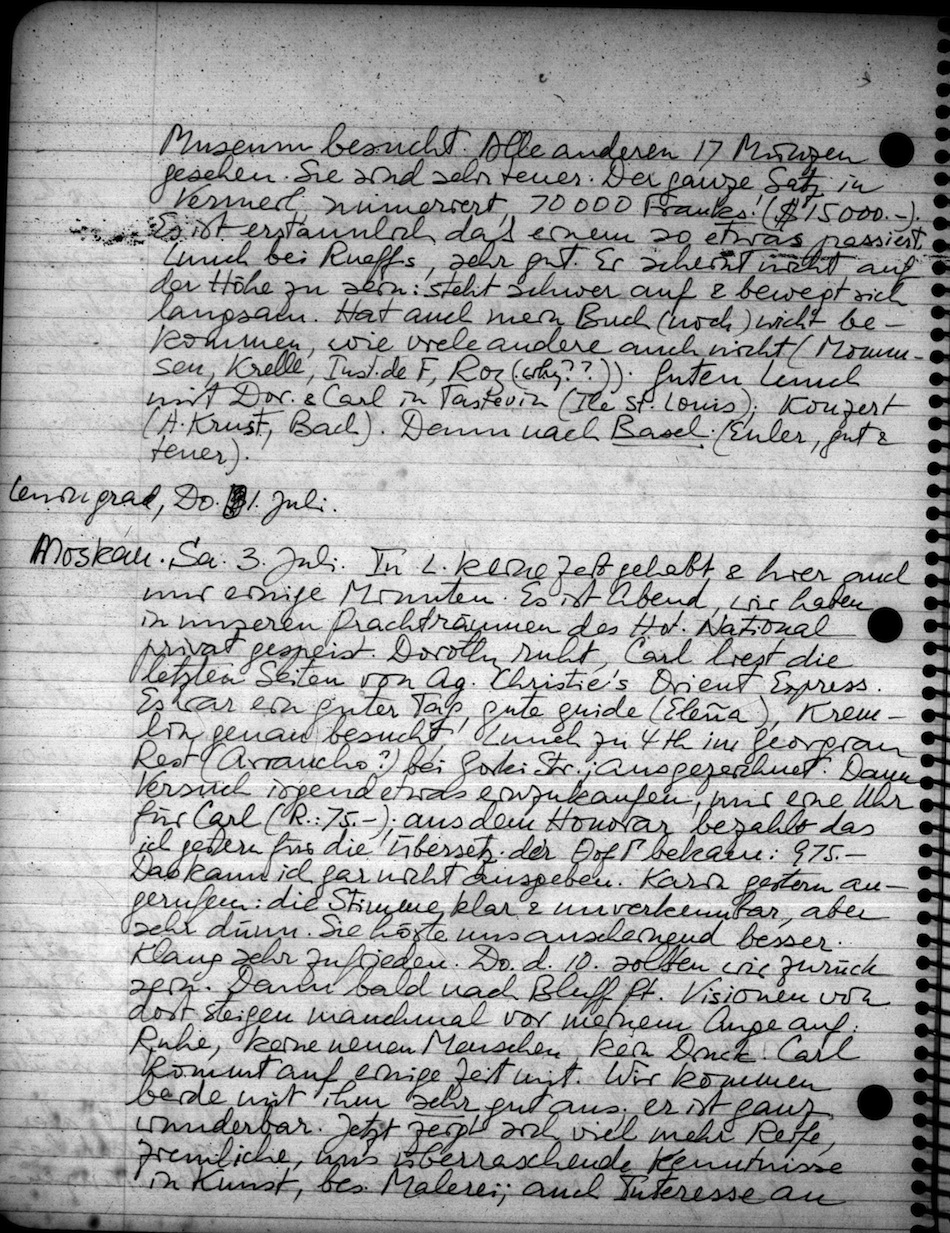 Museum besucht. Alle anderen 17 Münzen
gesehen. Sie sind sehr teuer. Der ganze Satz in
Vermeil numeriert 70 000 Franks! ($ 15 000.-).
Es ist erstaunlich daß einem so etwas passiert.
Lunch bei Rueffs, sehr gut. Er scheint nicht auf
der Höhe zu sein: steht schwer auf & bewegt sich
langsam. Hat auch mein Buch (noch) nicht be-
kommen, wie viele andere auch nicht (Momm-
sen, Krelle, Inst. de F, Roz (why??)). Guten Lunch
mit Dor. & Carl in Tastevin (Ile St. Louis); Konzert
(A. Krust, Bach). Dann nach Basel. (Euler, gut &
teuer).
Leningrad, Do. 1. Juli.
Moskau. Sa. 3. Juli. In L. keine Zeit gehabt & hier auch
nur einige Minuten. Es ist Abend, wir haben
in unseren Prachträumen des Hot. National
privat gespeist. Dorothy ruht, Carl liest die
letzten Seiten von Ag. Christie's Orient Express.
Es war ein guter Tag, gute guide (Elena), Krem-
lin genau besucht! Lunch zu 4th im georgian
Rest (Arraucho?) bei Gorki Str.; ausgezeichnet. Dann
Versuch irgend etwas einzukaufen, nur eine Uhr
für Carl (R.: 75.-); aus dem Honorar bezahlt das
ich gestern für die Übersetz. der bekam: 975.-
Das kann ich gar nicht ausgeben. Karin gestern an-
gerufen: die Stimme klar & unverkennbar, aber
sehr dünn. Sie hörte uns anscheinend besser.
Klang sehr zufrieden. Do. d. 10. sollten wir zurück
sein. Dann bald nach Bluff Pt. Visionen von
dort steigen manchmal vor meinem Auge auf:
Ruhe, keine neuen Menschen, kein Druck. Carl
kommt auf einige Zeit mit. Wir kommen
beide mit ihm sehr gut aus; er ist ganz
wunderbar. Jetzt zeigt sich viel mehr Reife,
ziemliche, uns überraschende Kenntnisse
in Kunst, bes. Malerei; auch Interesse an